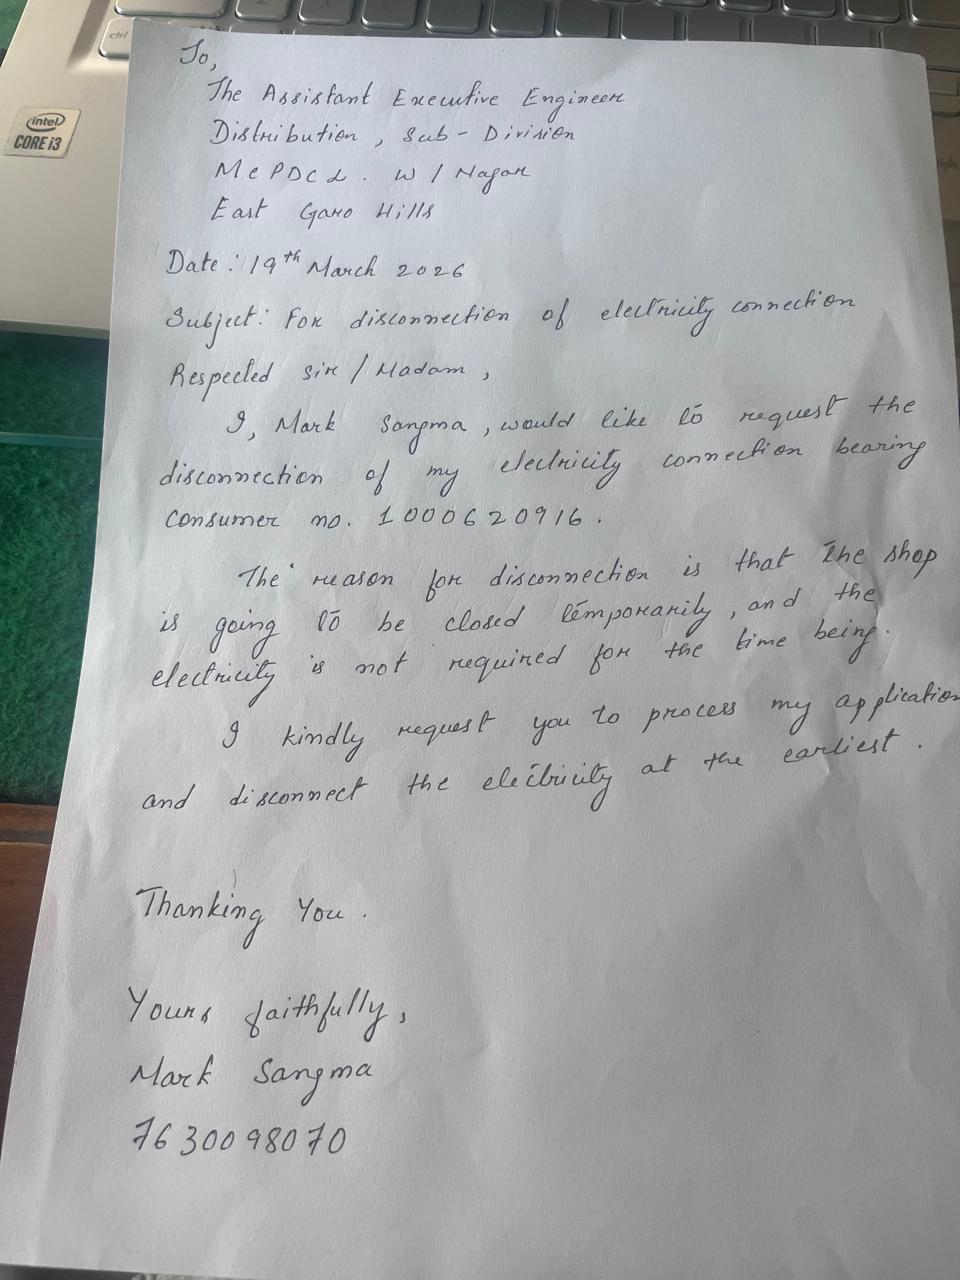 ctrl
intel
CORE i3
To,
The Assistant Executive Engineer
Distribution, Sub-Division
MePDCL. W/Nagar
East Garo Hills
Date: 19th March 2026
Subject: For disconnection of electricity connection
Respected Sir/Madam,
I, Mark Sangma, would like to request the
disconnection of my electricity connection bearing
consumer no. 1000620916.
The reason for disconnection is that the shop
is going to be closed temporarily, and the
electricity is not required for the time being.
I kindly request you to process my application
and disconnect the electricity at the earliest.
Thanking You.
Yours faithfully,
Mark Sangma
7630098070